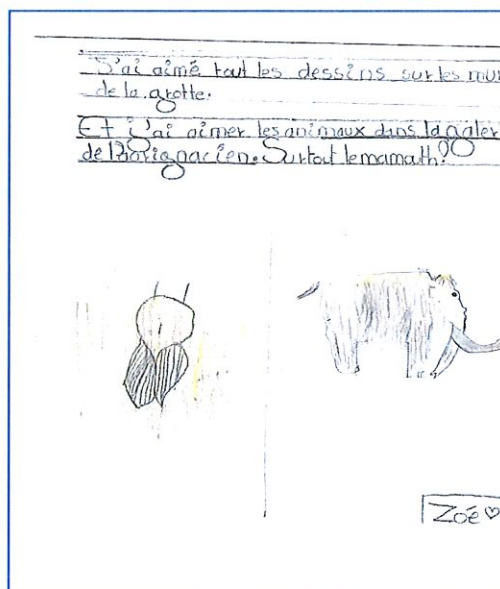 J'ai aimé tout les dessins sur les mur
de la grotte.
Et j'ai aimer les animaux dans la galer
de l'Aurignacien. Surtout le mamath!
Zoé ♡